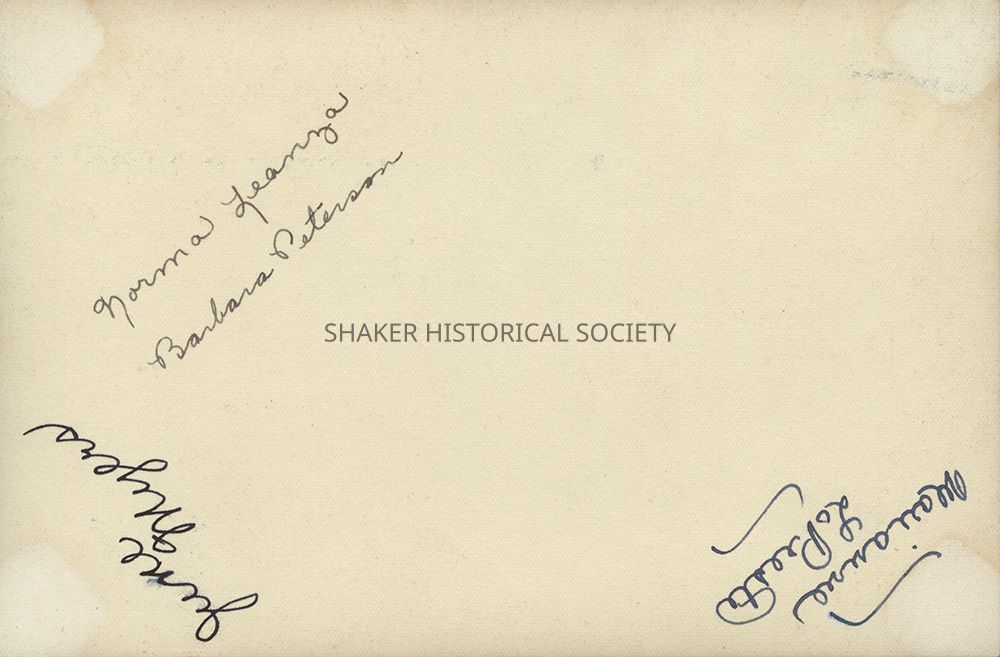 Norma Leanza
Barbara Peterson
SHAKER HISTORICAL SOCIETY
June
Myers
Marianne
Lo Presti